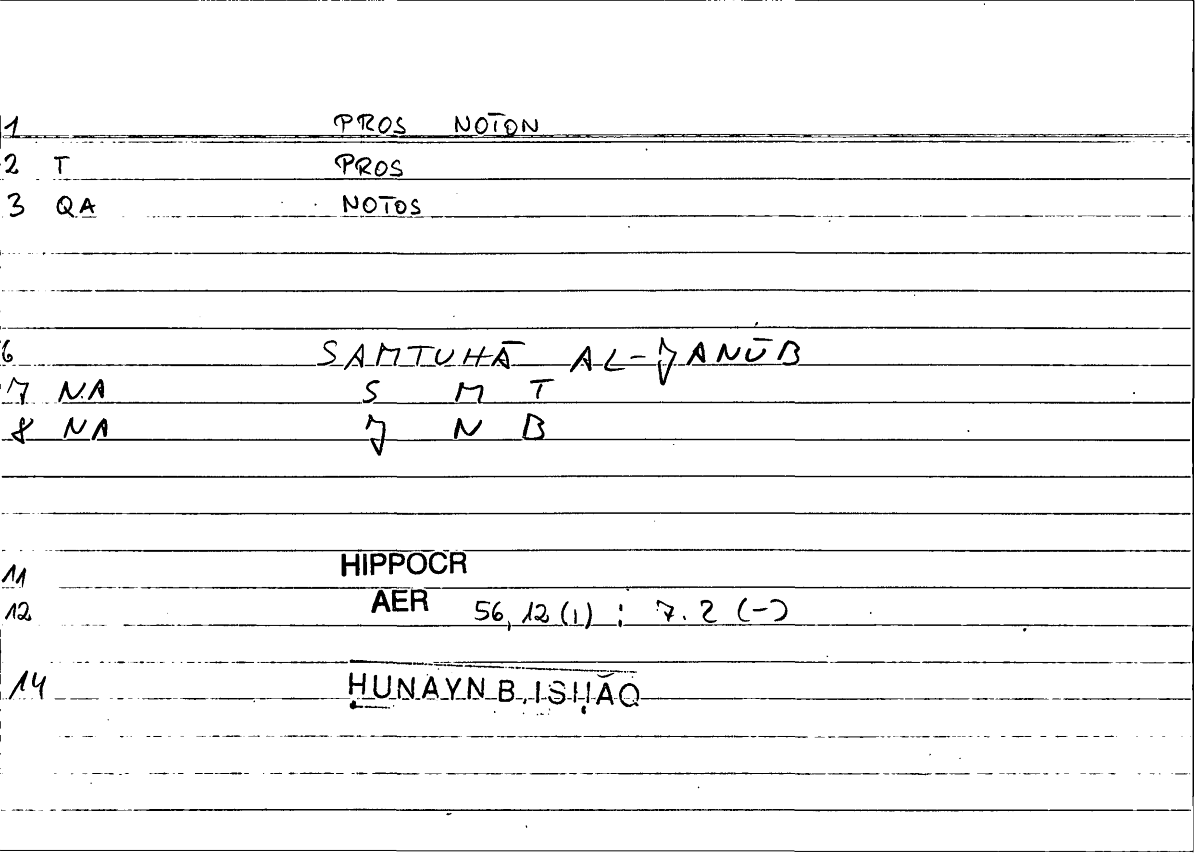 1 PROS NOTON
2 T PROS
3 QA NOTOS
6 SAMTUHĀ AL-JANŪB
7 NA S M T
8 NA J N B
11 HIPPOCR
12 AER 56,12 (1) ; 7.2 (-)
14 ḤUNAYN B. ISḤĀQ